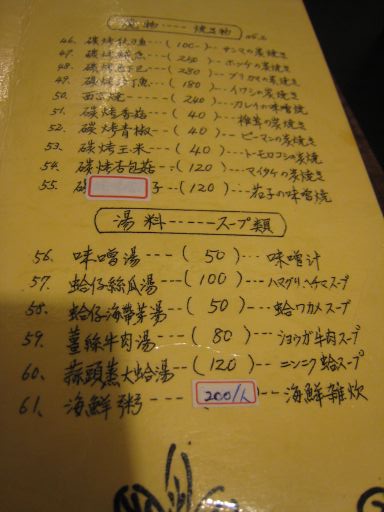 物----焼き物
46. 碳烤秋刀魚---(100)---サンマの炭焼き
47. 碳烤 魚---(240)---ホッケの炭焼き
48. 碳烤 ---(280)---ブリカマの炭焼き
49. 碳烤 魚---(180)---イワシの炭焼き
50. 西京焼----(240)---カレイの味噌焼
51. 碳烤香菇---(40)---椎茸の炭焼き
52. 碳烤青椒---(40)---ピーマンの炭焼き
53. 碳烤玉米---(40)---トーモロコシの炭焼
54. 碳烤杏包菇--(120)---マイタケの炭焼き
55. 碳 子--(120)---茄子の味噌焼
湯料-----スープ類
56. 味噌湯---(50)---味噌汁
57. 蛤仔絲瓜湯---(100)---ハマグリヘチマスープ
58. 蛤仔海帶芽湯---(50)---蛤ワカメスープ
59. 薑絲牛肉湯---(80)---ショウガ牛肉スープ
60. 蒜頭蒸大蛤湯---(120)---ニンニク蛤スープ
61. 海鮮粥---- 200/人 ---海鮮雑炊